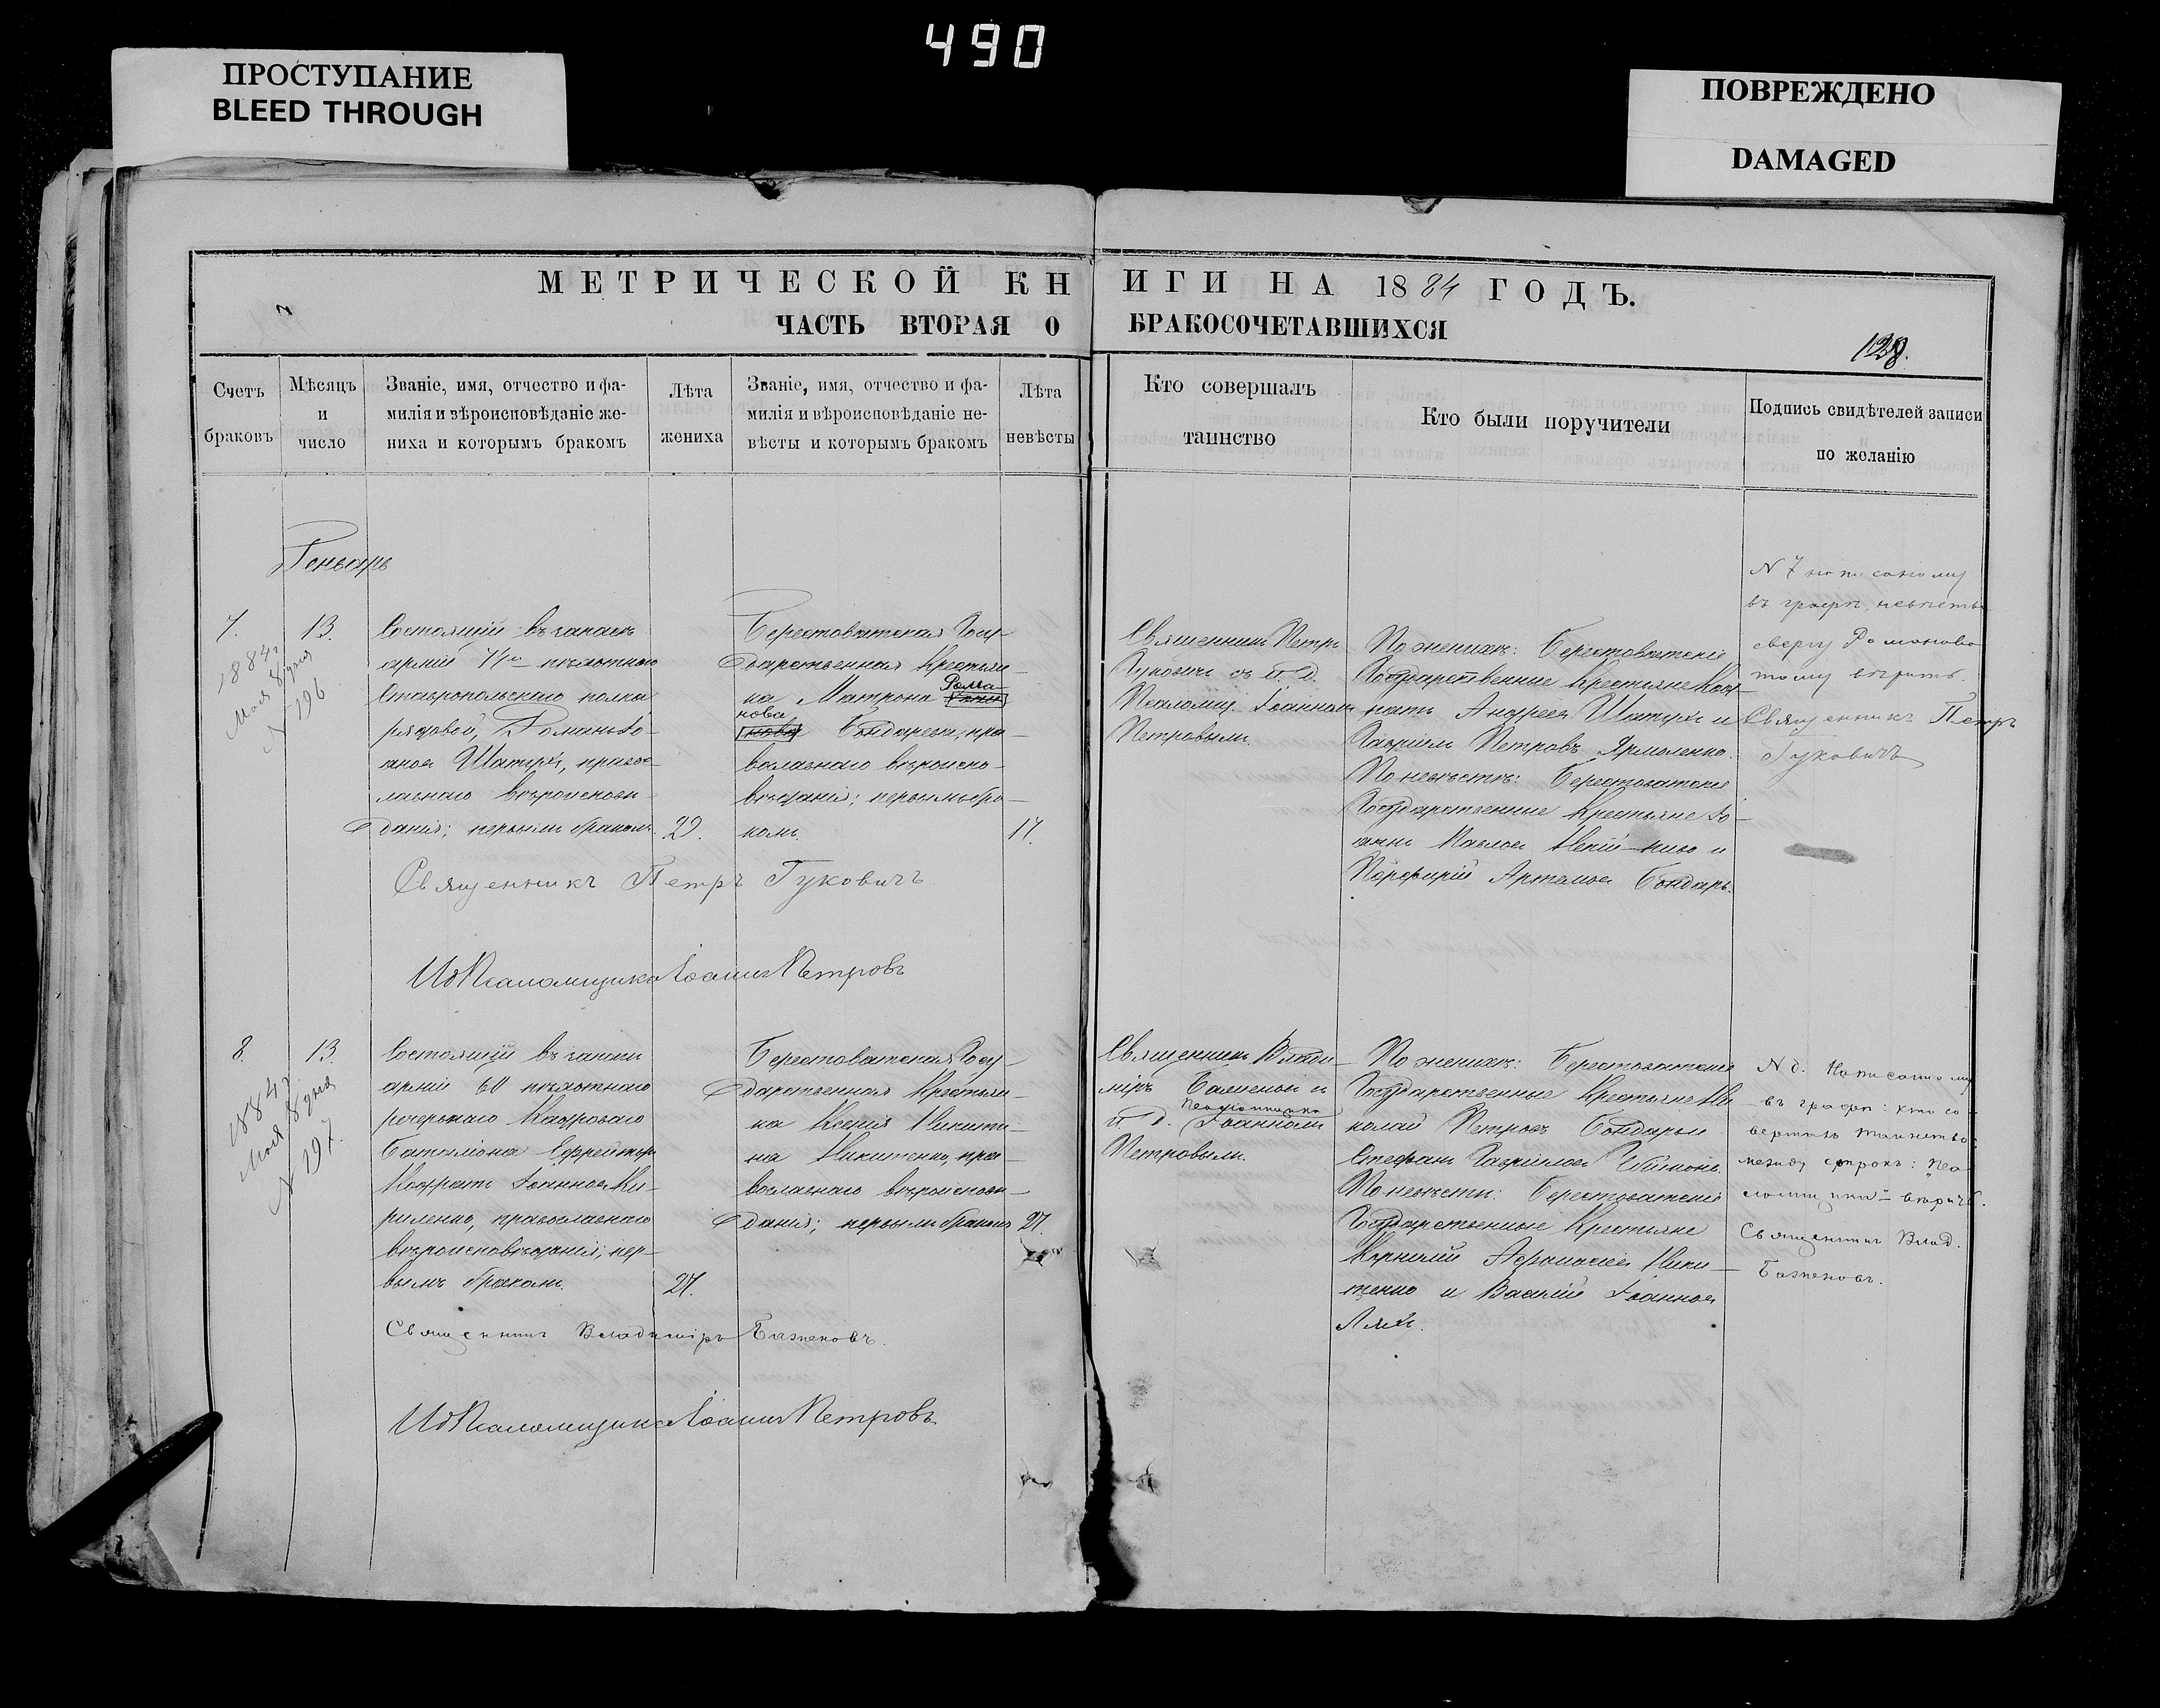 490
ПРОСТУПАНИЕ
BLEED THROUGH
ПОВРЕЖДЕНО
DAMAGED
МЕТРИЧЕСКОЙ КНИГИ НА 1884 ГОДЪ.
ЧАСТЬ ВТОРАЯ О БРАКОСОЧЕТАВШИХСЯ
Счетъ
браковъ
Мѣсяцъ
и
число
Званіе, имя, отчество и фа-
милія и вѣроисповѣданіе же-
ниха и которымъ бракомъ
Лѣта
жениха
Званіе, имя, отчество и фа-
милія и вѣроисповѣданіе не-
вѣсты и которымъ бракомъ
Лѣта
невѣсты
Кто совершалъ
таинство
Кто были поручители
Подпись свидѣтелей записи
по желанію
Геньварь
7.
1884г
Мая 8 дня
N 196
13.
Состоящій въ запасѣ
арміи пѣхотнаго
Ставропольскаго полка
рядовой, Романъ Іо-
аннов Шатухъ, правос-
лавнаго вѣроисповѣ-
данія; первымъ бракомъ
29.
Берестоватская Госу-
дарственная Крестьян-
ка Матрона Рома-
нова Бондарева, пра-
вославнаго вѣроиспо-
вѣданія; первымъ бра-
комъ.
17.
Священникъ Петръ
Гуковичъ съ и. д.
Псаломщ. Іоанномъ
Петровымъ.
По женихѣ: Берестоватскіе
Государственные Крестьяне
Андреев Шатухъ и
Гавріилъ Петровъ Ярмоленко.
По невѣстѣ: Берестоватскіе
Государственные Крестьяне Іо-
аннъ Павлов и
Порфирій Артемов Бондарь.
N 7 написанному
въ графѣ невѣсты
сверху Романово
тому вѣрить.
Священникъ Петръ
Гуковичъ
Священникъ Петръ Гуковичъ
ИдПсаломщика Іоаннъ Петровъ
8.
1884г
Мая 8 дня
N 197.
13.
Состоящій въ запасѣ
арміи 60 пѣхотнаго
резервнаго Кадроваго
Баталіона Ефрейторъ
Кодратъ Іоаннов Ки-
риленко, православнаго
вѣроисповѣданія; пер-
вымъ бракомъ.
27.
Берестоватская Госу-
дарственная Крестьян-
ка Ксенія Никити-
на Никитенко, пра-
вославнаго вѣроисповѣ-
данія; первымъ бракомъ
27.
Священникъ Влади-
міръ Баженовъ и
и. д. Псаломщика Іоанномъ
Петровымъ.
По женихѣ: Берестоватскіе
Государственные Крестьяне Ни-
колай Петровъ Бондарь и
Стефанъ Гавріилов
По невѣстѣ: Берестоватскіе
Государственные Крестьяне
Корнилій Афанасіев Ники-
тенко и Василій Іоаннов
Ляхъ.
N 8. Написанному
въ графѣ: кто со-
вершалъ таинство:
между строкъ: "Пса-
ломщика" вѣрить.
Священникъ Влад.
Баженовъ.
Священникъ Владиміръ Баженовъ.
ИдПсаломщика Іоаннъ Петровъ